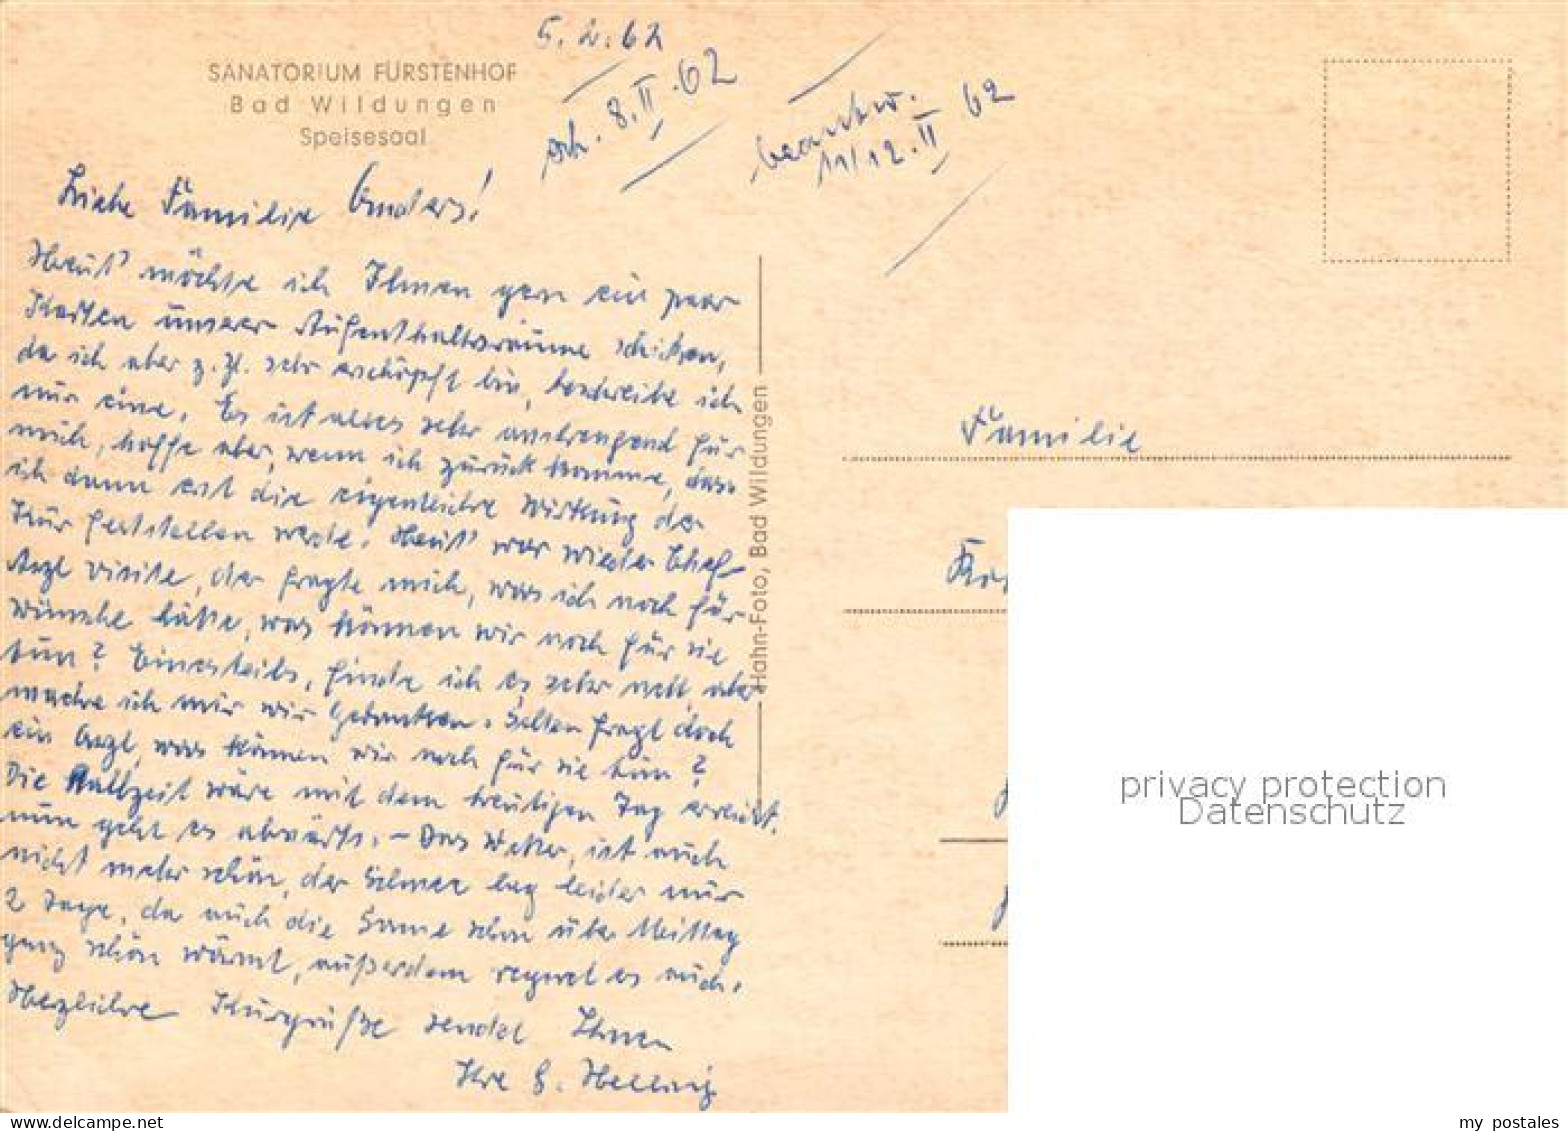 SANATORIUM FÜRSTENHOF
Bad Wildungen
Speisesaal
5.2.62
erh. 8.II.62
beantw.
11/12.II 62
Liebe Familie Enders!
Heut' möchte ich Ihnen gern ein paar
Karten unserer Aufenthaltsräume schicken,
da ich aber z.Zt. sehr erschöpft bin, beschreibe ich
nur eine. Es ist alles sehr anstrengend für
mich, hoffe aber, wenn ich zurück komme, dass
ich dann erst die eigentliche Wirkung der
Kur feststellen werde. Heut' war wieder Chef-
Arzt visite, der fragte mich, was ich noch für
Wünsche hätte, was können wir noch für sie
tun? Einesteils, finde ich es sehr nett, aber
mache ich mir wir Gedanken. Selten fragt doch
ein Arzt, was können wir noch für sie tun?
Die Halbzeit wäre mit dem heutigen Tag erreicht,
nun geht es abwärts. – Das Wetter, ist auch
nicht mehr schön, der Schnee lag leider nur
2 Tage, da auch die Sonne schon über Mittag
ganz schön wärmt, außerdem regnet es auch.
Herzliche Kurgrüße sendet Ihnen
Ihre G. Hellwig
Hahn-Foto, Bad Wildungen
Familie
privacy protection
Datenschutz
delcampe.net
my_postales